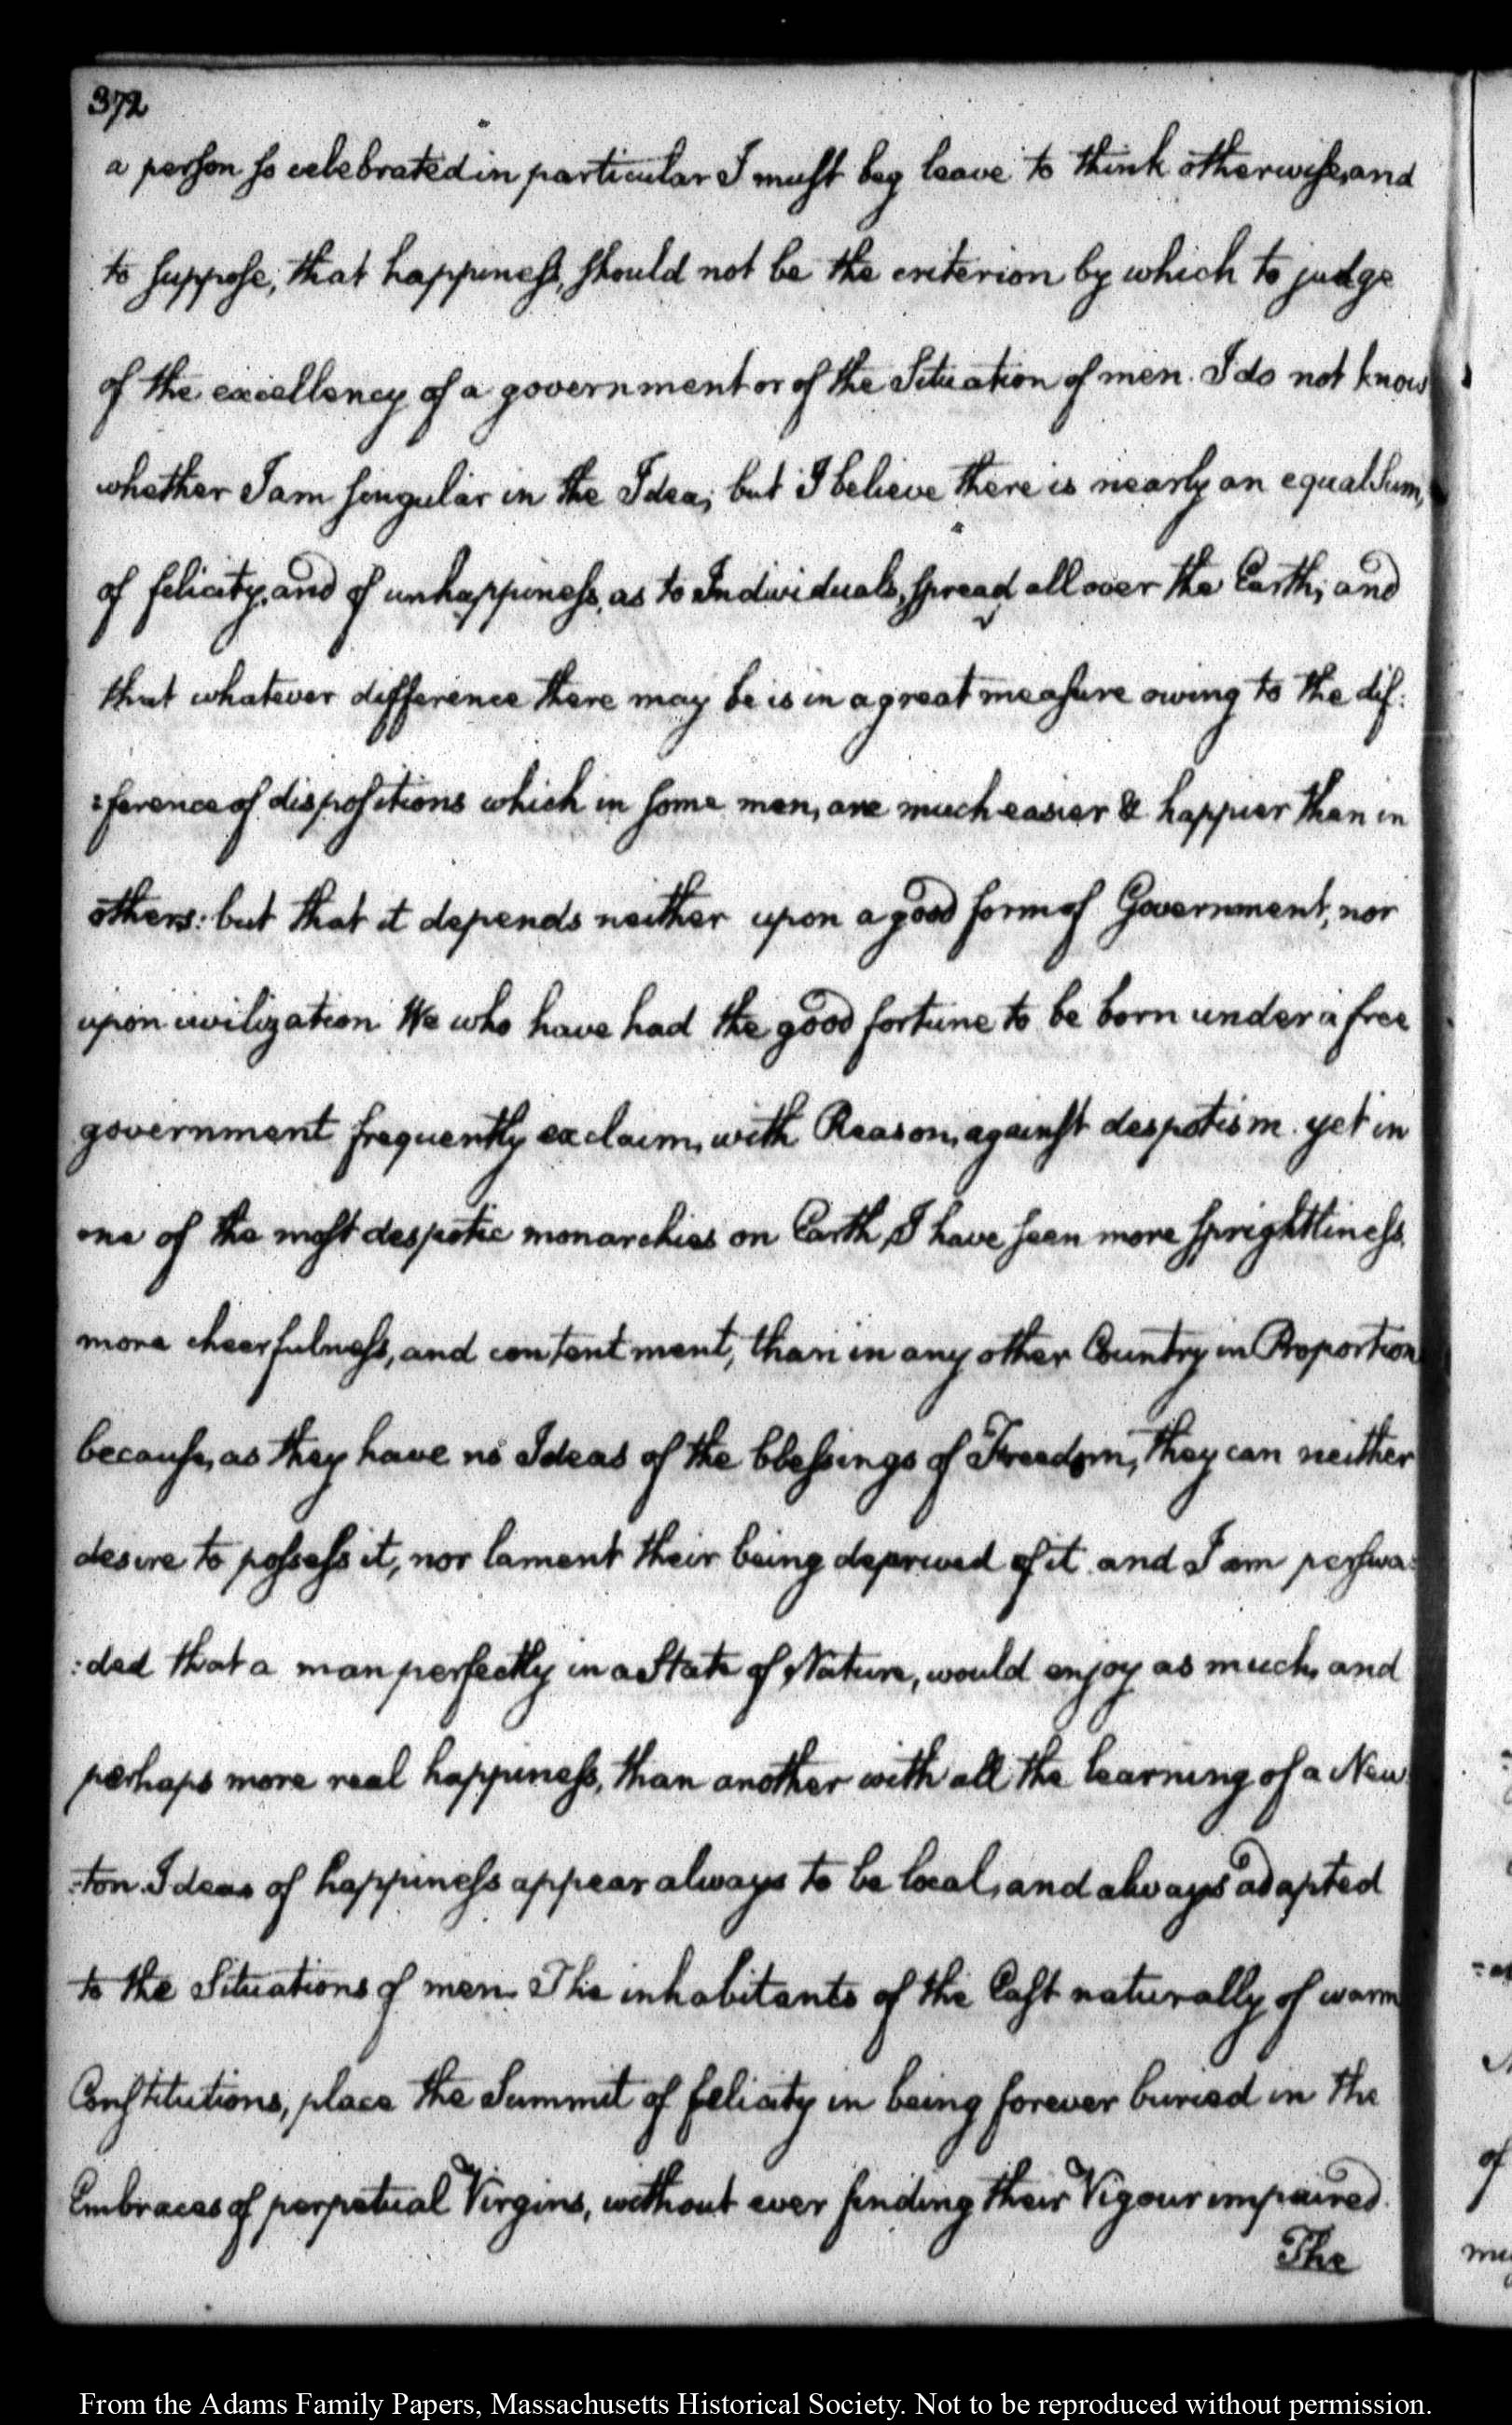 372
a person so celebrated in particular I must beg leave to think otherwise, and
to suppose, that happiness, should not be the criterion by which to judge
of the excellency of a government or of the Situation of men. I do not know
whether I am singular in the Idea; but I believe there is nearly an equal Sum,
of felicity, and of unhappiness, as to Individuals, spread all over the Earth; and
that whatever difference there may be is in a great measure owing to the dif:
:ference of dispositions which in some men, are much easier & happier than in
others: but that it depends neither upon a good form of Government, nor
upon civilization. We who have had the good fortune to be born under a free
government frequently exclaim, with Reason, against despotism. yet in
one of the most despotic monarchies on Earth, I have seen more sprightliness,
more cheerfulness, and contentment, than in any other Country in Proportion
because, as they have no Ideas of the blessings of Freedom, they can neither
desire to possess it, nor lament their being deprived of it. and I am perswa:
:ded that a man perfectly in a State of Nature, would enjoy as much, and
perhaps more real happiness, than another with all the learning of a New
:ton. Ideas of happiness appear always to be local, and always adapted
to the Situations of men. The inhabitants of the East naturally of warm
Constitutions, place the Summit of felicity in being forever buried in the
Embraces of perpetual Virgins, without ever finding their Vigour impaired.
The
From the Adams Family Papers, Massachusetts Historical Society. Not to be reproduced without permission.